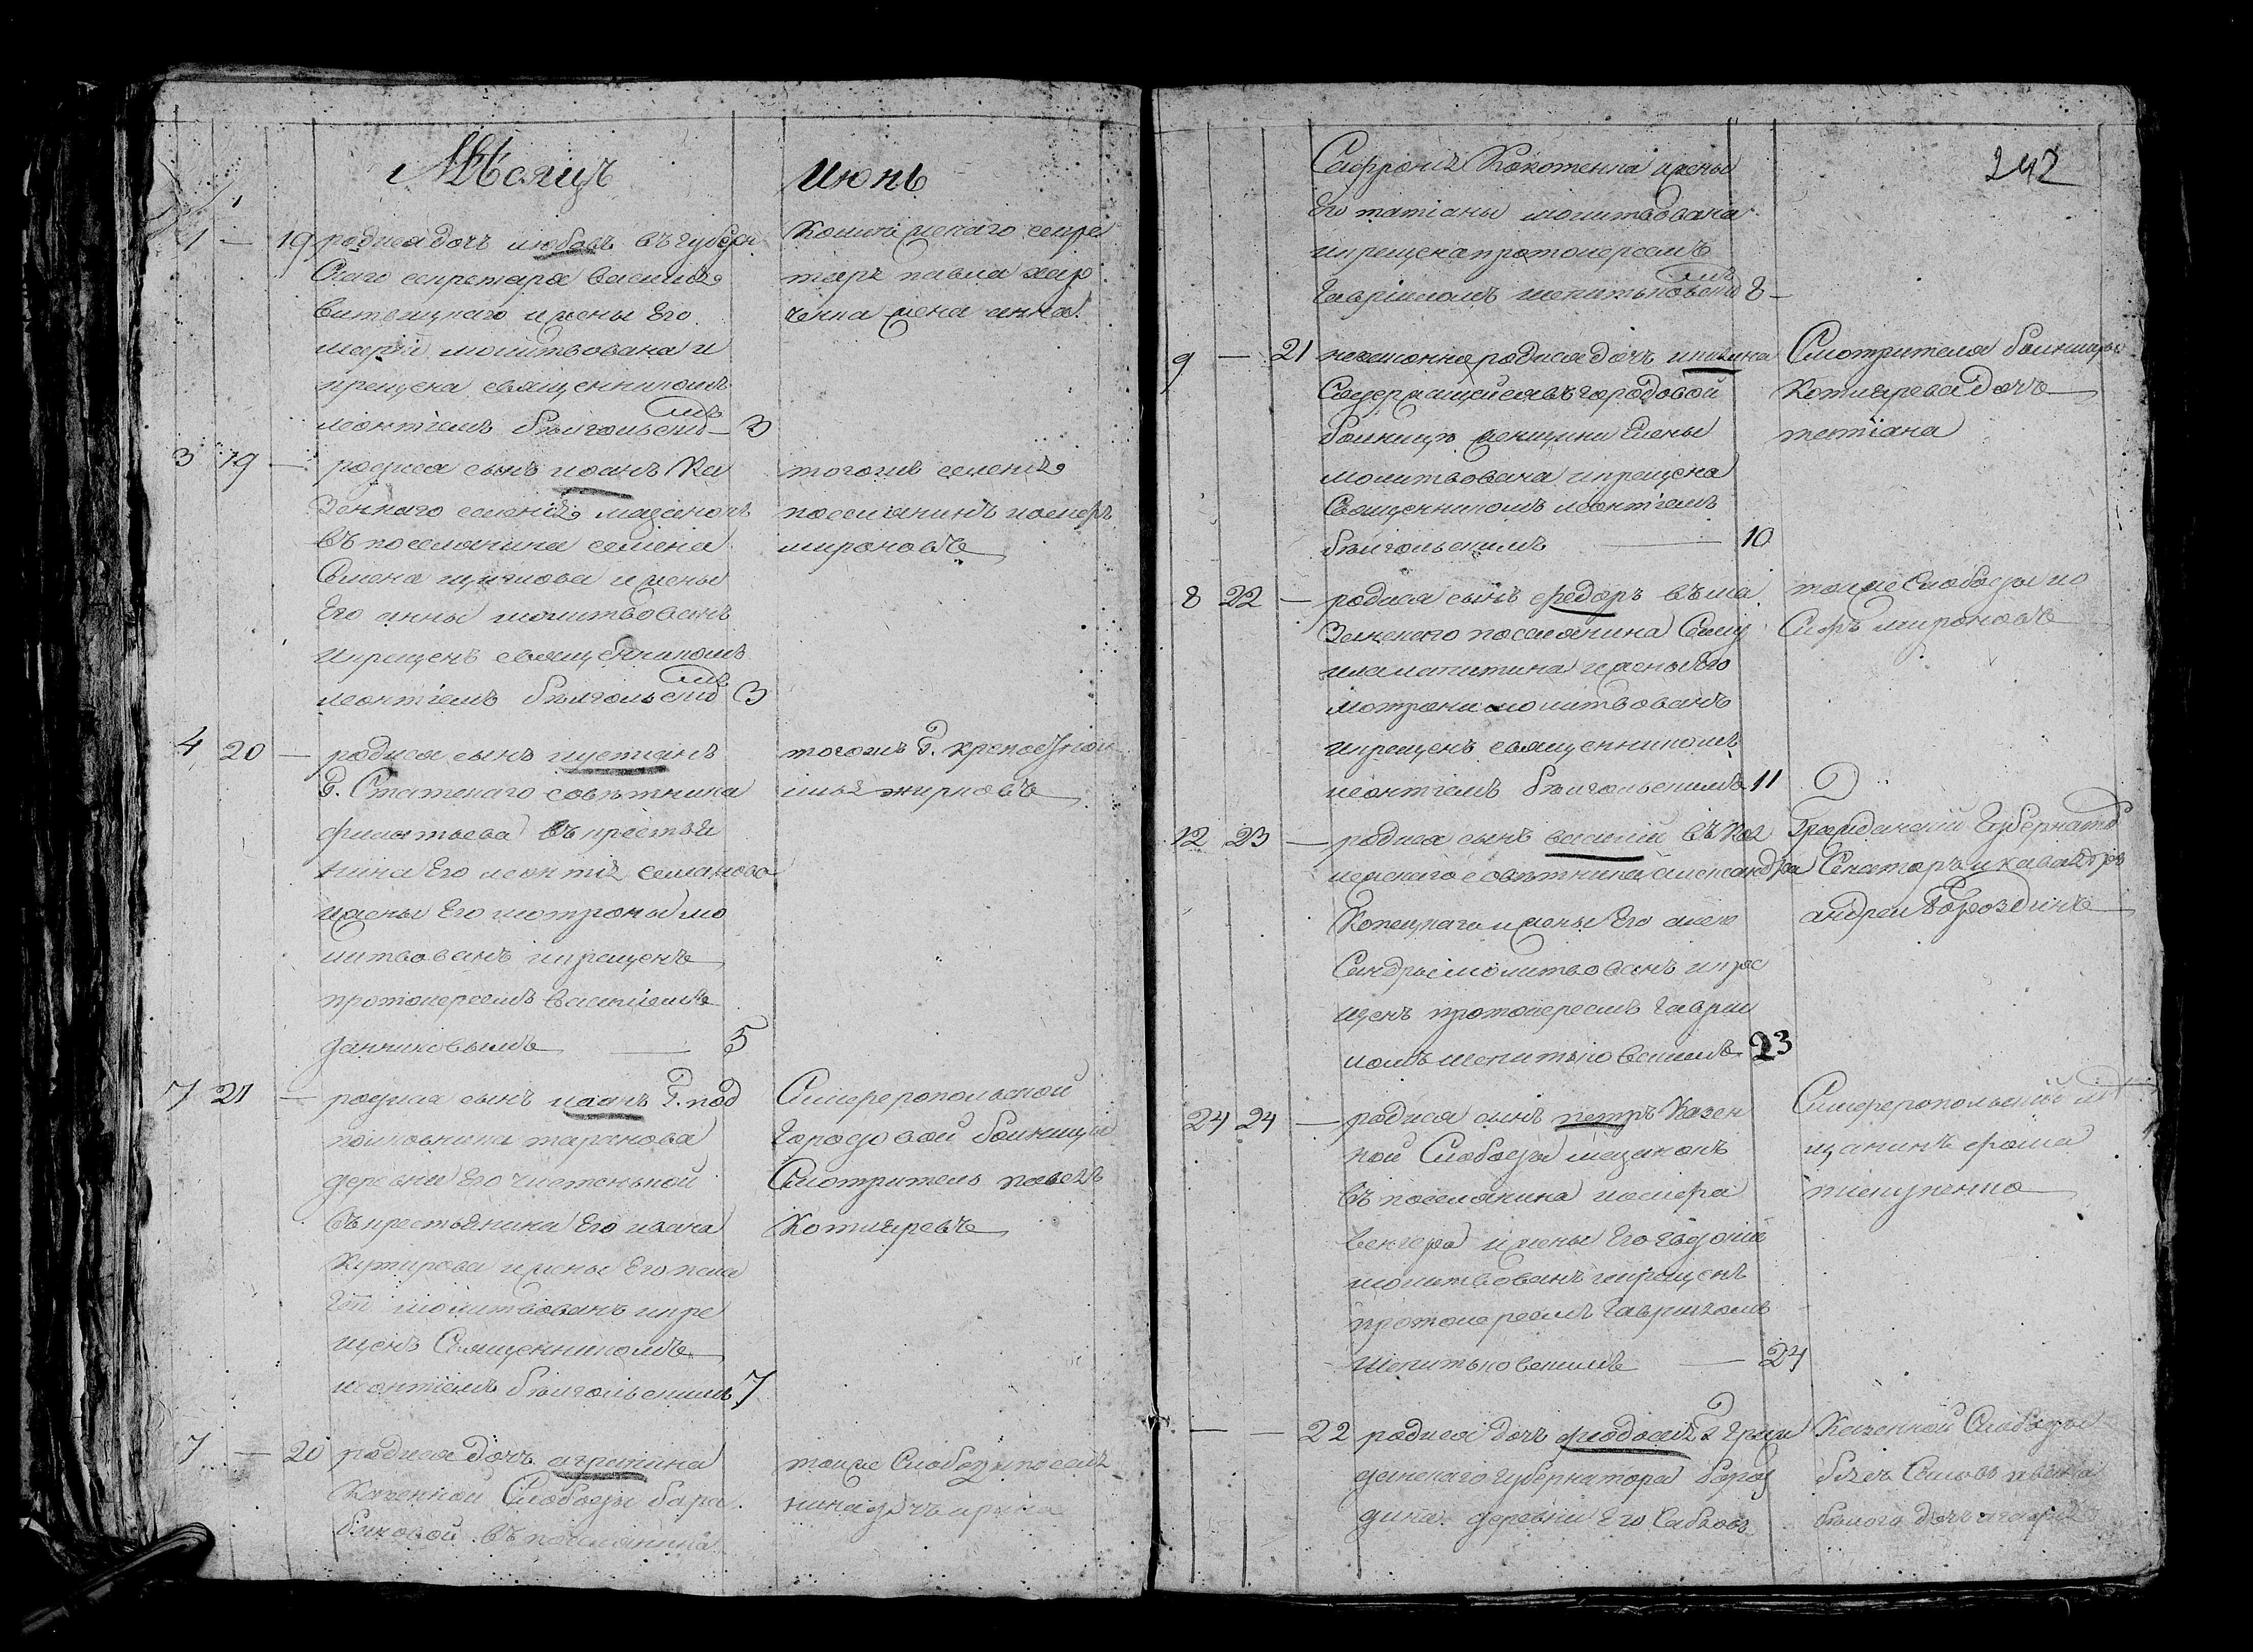 Мѣсяцъ Июнь
1 — 19 родися дочъ любовъ въ губерн
скаго секретаря василия
витвицкаго и жены Его
марiи молитвована и
крещена священникомъ
леонтiемъ бѣлгольскимъ 3
секре
таря павла хар
ченка жена анна
3 19 — родися сынъ иоанъ Ка
зеннаго селения мазанокъ
въ поселянина семена
Семена и жены
Его анны молитвованъ
и крещенъ священникомъ
леонтiемъ бѣлгольскимъ 3
тогожъ селения
поселянинъ иосифъ
мироновъ
4 20 — родися сынъ иустианъ
Г. Статскаго совѣтника
филатьева въ крестья
нина Его леонтия семанова
и жены Его мотроны мо
литвованъ и крещенъ
протоиереемъ василиемъ
данниковымъ — 5
тогожъ Г. крепостной
илья жирновъ
7 21 — родися сынъ иванъ Г. под
полковника таранова
деревни Его чистенькой
въ крестьянина Его ивана
Кутирова и жены Его пела
гѣи молитвованъ и кре
щенъ Священникомъ
леонтiемъ бѣлгольскимъ 7
Симферопольской
городовой больницы
Смотритель павелъ
Котляревъ
7 — 20 родися дочъ агрипина
Казенной Слободы бара
бановой въ поселянина
тоиже Слободы посел
нина дочъ ирина
242
Сафрония Кокотенка и жены
Его татiаны молитвована
и крещена протоиереемъ
Гаврииломъ шепитьковскимъ 8 —
9 — 21 незаконная родися дочъ
Содержащийся въ городовой
больницѣ женщины Елены
молитвована и крещена
Священникомъ леонтiемъ
бѣлгольскимъ — 10
Смотрителя больницы
Котлярева дочъ
татiана
8 22 — родися сынъ федоръ въ ма
занскаго поселянина Саму
ила и жены Его
мотрони молитвованъ
и крещенъ священникомъ
леонтiемъ бѣлгольскимъ 11
тоиже Слободы ио
Сифъ мироновъ
12 23 — родися сынъ василий въ Кол
лежскаго совѣтника александра
Копецкаго и жены Его алек
Сандры молитвованъ и кре
щенъ протоиереемъ гаврии
ломъ шепитьковскимъ 23
Гражданский Губернаторъ
Сенаторъ и кавалеръ
андреи Бороздинъ
24 24 — родися сынъ петръ Казен
ной Слободы мазанокъ
въ поселянина иосифа
венгера и жены Его
молитвованъ и крещенъ
протоиереемъ Гаврииломъ
шепитьковскимъ — 24
Симферопольский мѣ
щанинъ фома
— — 22 родися дочъ феодосия Г. граж
данскаго губернатора бороз
дина деревни Его Сабловъ
Казенной Слободы
бѣлого дочъ агафия